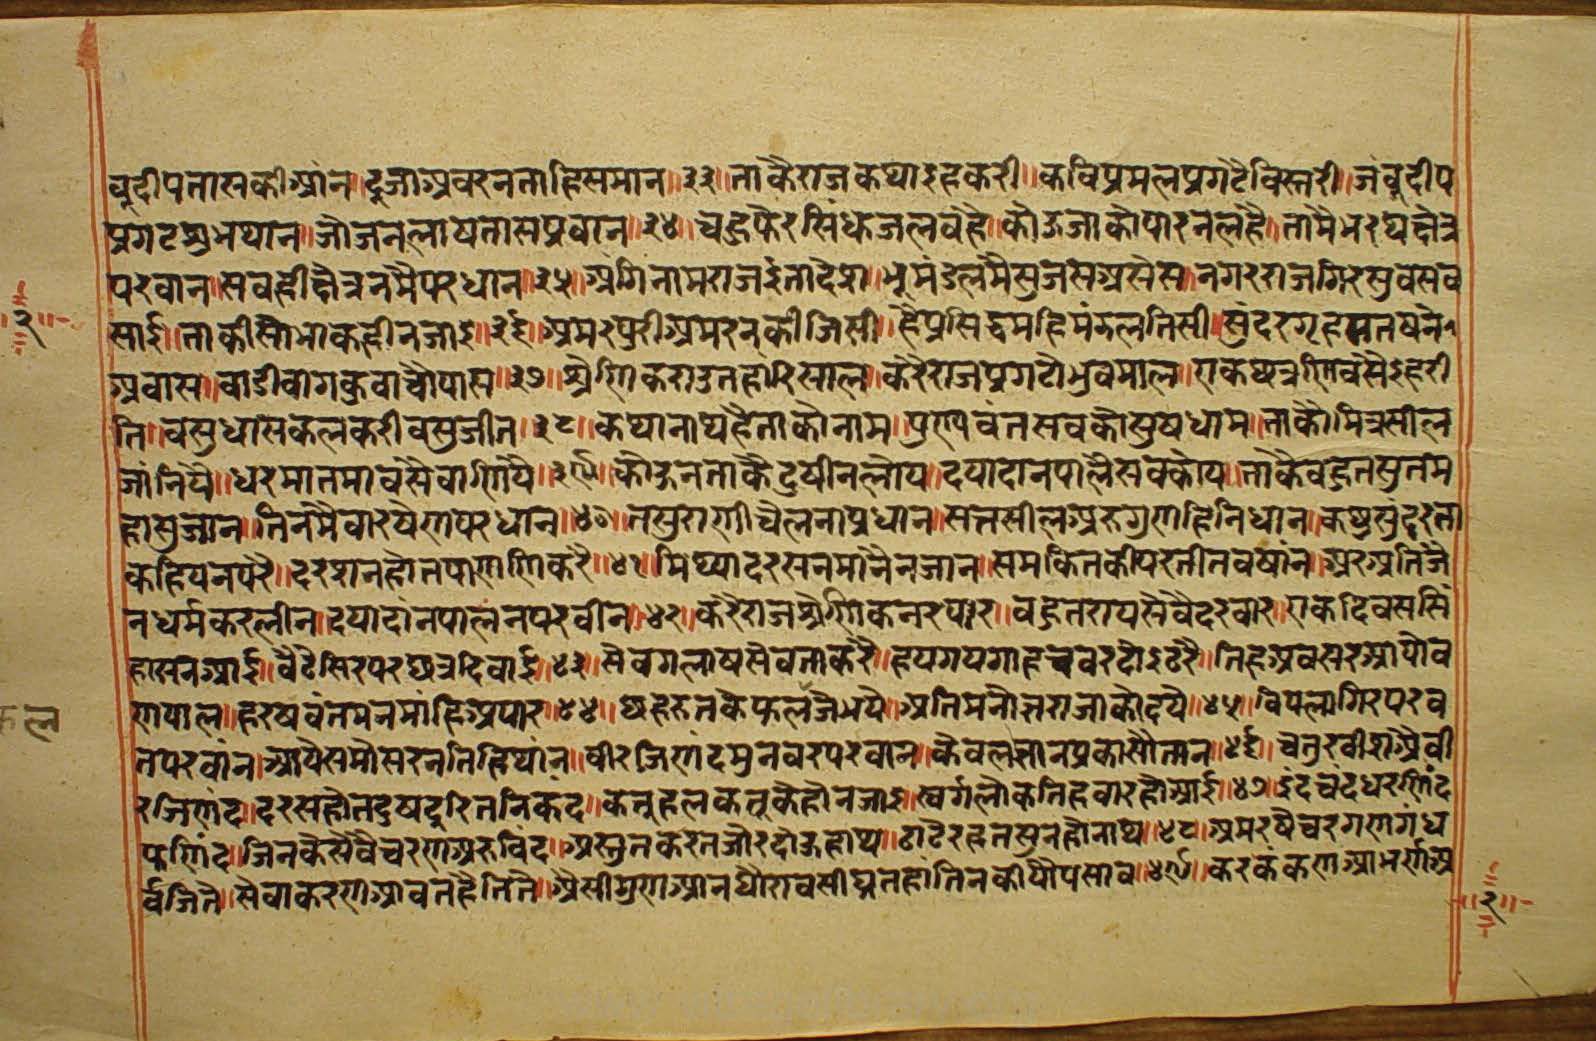 वूदीपतासकीआंन॥दुजाअवरनताहिसमान॥३३॥ताकैराजकथाइहकरी॥कविप्रमलप्रगटैविस्तरी॥जंवूदीप
प्रगटशुभथान॥जौजनलाषतासप्रवान॥३४॥चहुफैरसिंधजलवहै॥कौऊजाकौपारनलहै॥तामैभरथक्षेत्र
परवान॥सवहीक्षैत्रनमैपरधान॥३५॥अंगिनामराजईतादेश॥भूमंडलमैसुजसअसेस॥नगरराजगिरसुवसव
साई॥ताकीसौभाकहीनजाइ॥३६॥अमरपुरीअमरनकीजिसी॥हैप्रसिद्धमहिमंडलतिसी॥सुंदरगृहसतषन
अवास॥वाडीवागकुवाचौपास॥३७॥श्रैणिकराउतहारिसाल॥करैराजप्रगटौभुवमाल॥एकछत्रतिवसैइहरी
ति॥वसुधासकलकरीवसुजीत॥३८॥कथानाथहैताकौनाम॥पुण्यवंतसवकौसुषधाम॥ताकौमित्रसील
जांनियै॥धरमातमावसैवाणियै॥३९॥कौऊनताकैदुषीनलौय॥दयादानपालैसवकोय॥ताकैवहुतसुतम
हासुज्ञान॥तिनमैवारषैणपरधान॥४०॥तसुराणीचैलनाप्रधान॥सतसीलअरुगुणहिनिधान॥कछुसुंदरता
कहियनपरै॥दरशनहौतपाणणिकरै॥४१॥मिथ्यादरसनमांनैनजान॥समकितकीपरतीतवषांन॥अरअतिजै
नधर्मकरलीन॥दयादांनपालनपरवीन॥४२॥करैराजश्रैणिकनरपार॥वहुतरायसैवैदरवार॥एकदिवससिं
हासनआई॥वैठैसिरपरछत्रदिवाई॥४३॥सैवगलाषसैवताकरै॥हयगयगाहचवरदोइटरै॥तिहअवसरआयौव
णपाल॥हरषवंतमनमांहिअपार॥४४॥छहरुतकैफलजैभयै॥अतिमनौज्ञराजाकौदयै॥४५॥विपलागिरपरव
तपरवांन॥आयैसमौसरनतिहिथांन॥वीरजिणंदमुनवरपरवान॥कैवलज्ञानप्रकासौतान॥४६॥चतुरवीशश्रैवी
रजिणंद॥दरसहौतदुषदुरितनिकंद॥कतुहलकतुकैहौनजाइ॥स्वर्गलौकतिहवारहौआई॥४७॥इंदचंदधरणिंद
फणिंद॥जिनकैसैवैचरणअरुविंद॥अस्तुतकरतजौरदोऊहाथ॥ठाढैरहतसुनहौनाथ॥४८॥अमरषैचरगणगंध
र्वजिते॥सैवाकरणआवतहैतिते॥श्रैसीमुणआनधौरावसीघ्रतहांतिनकौपौपसाव॥४९॥करकंकणआभर्णअ